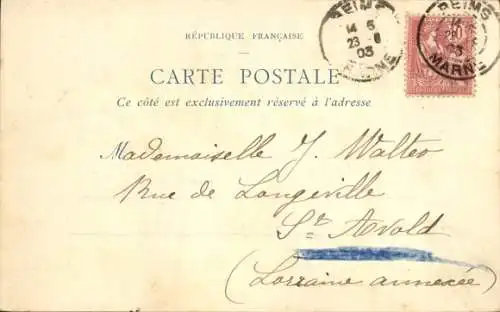 REIMS
14 5
23 - 8
03
MARNE
REIMS
MARNE
RÉPUBLIQUE FRANÇAISE
CARTE POSTALE
Ce côté est exclusivement réservé à l'adresse
Mademoiselle J. Walter
Rue de Longeville
St Avold
(Lorraine annexée)